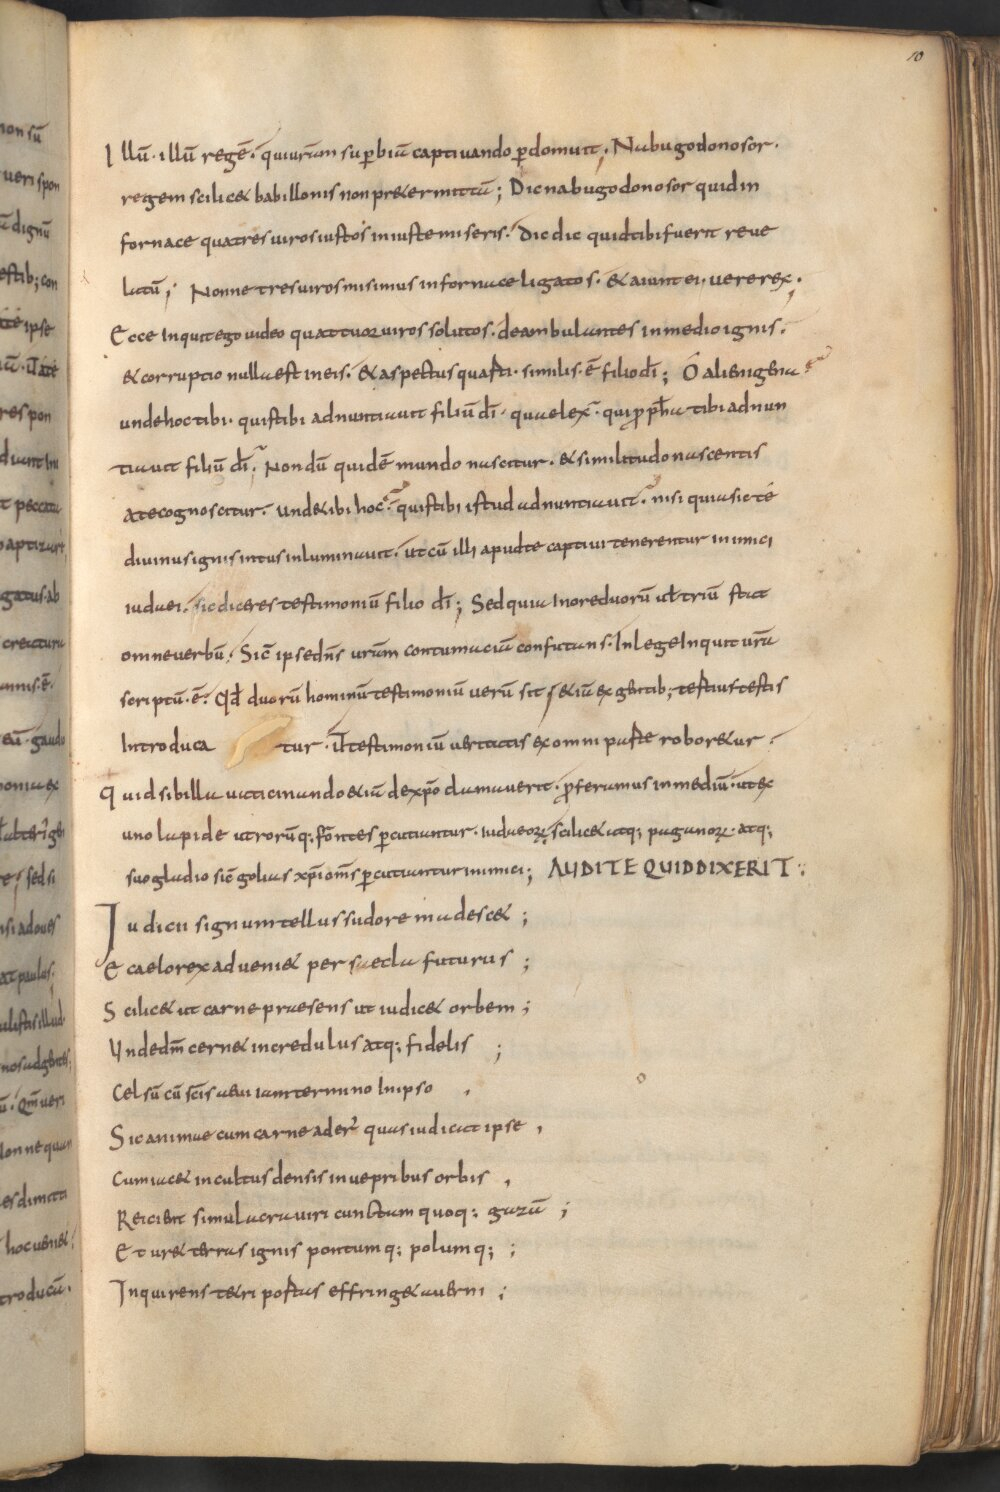 10
Illū · illū regē · qui urām sup̄biā captivando p̄domuit · Nabugodonosor ·
regem scilic& babillonis non pr&ermittā ; Dic nabugodonosor quid in
fornace qua tres viros iustos iniuste miseris · dic dic quid tibi fuerit reve
latū ; Nonne tres viros misimus in fornace ligatos · & aiunt ei vere rex ·
Ecce inquit ego video quattuor viros solutos · deambulantes in medio ignis ·
& corruptio nulla est in eis · & aspectus quarti · similis · ē filio dī ; O alienigena
unde hoc tibi · quis tibi adnuntiavit filiū dī · quae lex · qui p̄ph̄a tibi adnun
tiavit filiū dī · Nondū quidē mundo nascitur · & similitudo nascentis
a te cognoscitur · unde tibi hoc · quis tibi istud adnuntiavit · nisi quia sic te
divinus ignis intus inluminavit · ut cū illi apud te captivi tenerentur inimici
iudaei · sic diceres testimoniū filio dī ; Sed quia in ore duorū ul̄ triū stat
omne verbū · Sic̄ ipse dn̄s urām contumaciā confutans · In lege inquit urā
scriptū · ē · Qd̄ duorū hominū testimoniū verū sit · &iā ex gentib; testis testis
introduca tur · ut̄ testimoniū veritatis ex omni parte robor&ur ·
Quid sibilla vaticinando &iā de xp̄o clamaverit · p̄feramus in mediū · ut ex
uno lapide utrorūq; frontes p̄cutiantur · iudaeorꝝ scilic& atq; paganorꝝ · atq;
suo gladio sic̄ golias xp̄i om̄s p̄cutiantur inimici ; AUDITE QUID DIXERIT :
Iudicii signum tellus sudore madesc& ;
E caelo rex adveni& per saecla futurus ;
Scilic& ut carne praesens ut iudic& orbem ;
Unde dm̄ cernent incredulus atq; fidelis ;
Celsū cū sc̄is aevi iam termino in ipso ,
Sic animae cum carne ader̄ quas iudicat ipse ,
Cum iac& incultus densis in vepribus orbis ,
Reicient simulacra viri cunctam quoq; gazā ;
Et ur& terras ignis pontumq; polumq; ;
Inquirens t&ri portas effring& averni ;